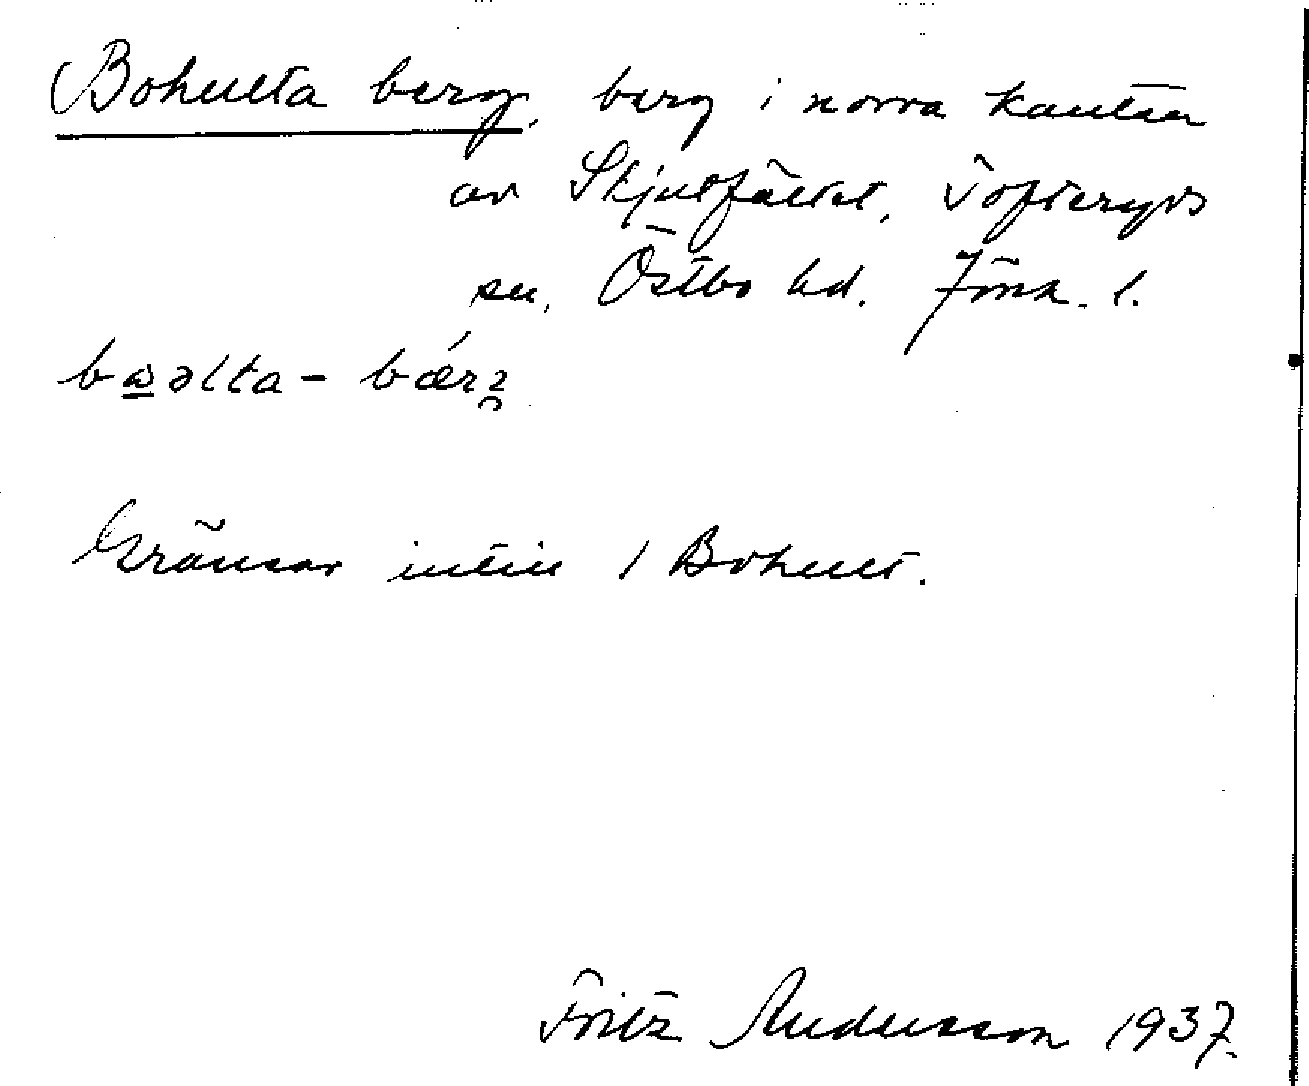 Bohulta berg, berg i norra kanten
av Skjutfältet, Tofteryds
sn, Östbo hd. Jönk. l.
Gränsar intill / Bohult.
Fritz Andersson 1937.